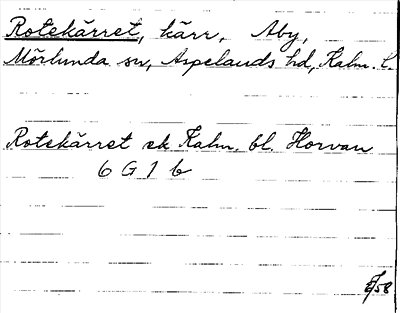 Rotekärret, kärr, Åby,
Mörlunda sn, Aspelands hd, Kalm. l.
Rotekärret ek Kalm. bl. Horvan
6 G 1 b